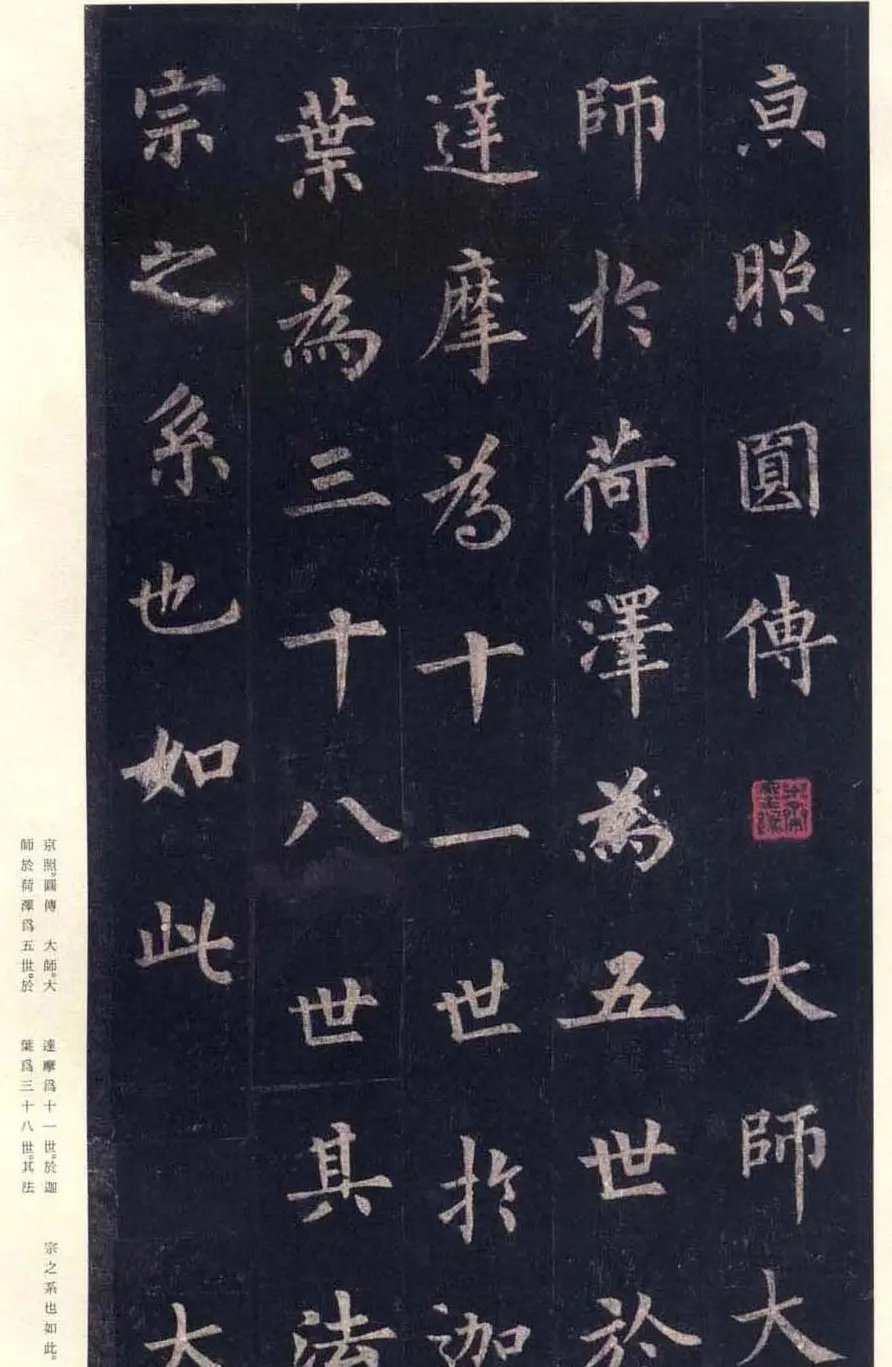 京照圓傳 大師大
師於荷澤為五世於
達摩為十一世於迦
葉為三十八世其法
宗之系也如此 大
京照。圓傳 大師。大
師於荷澤爲五世。於
達摩爲十一世。於迦
葉爲三十八世。其法
宗之系也如此。